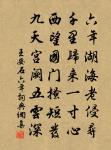 六年湖海老侵尋
千里歸來一寸心
西望國門搔短髮
九天宮闕五雲深
王安石六年